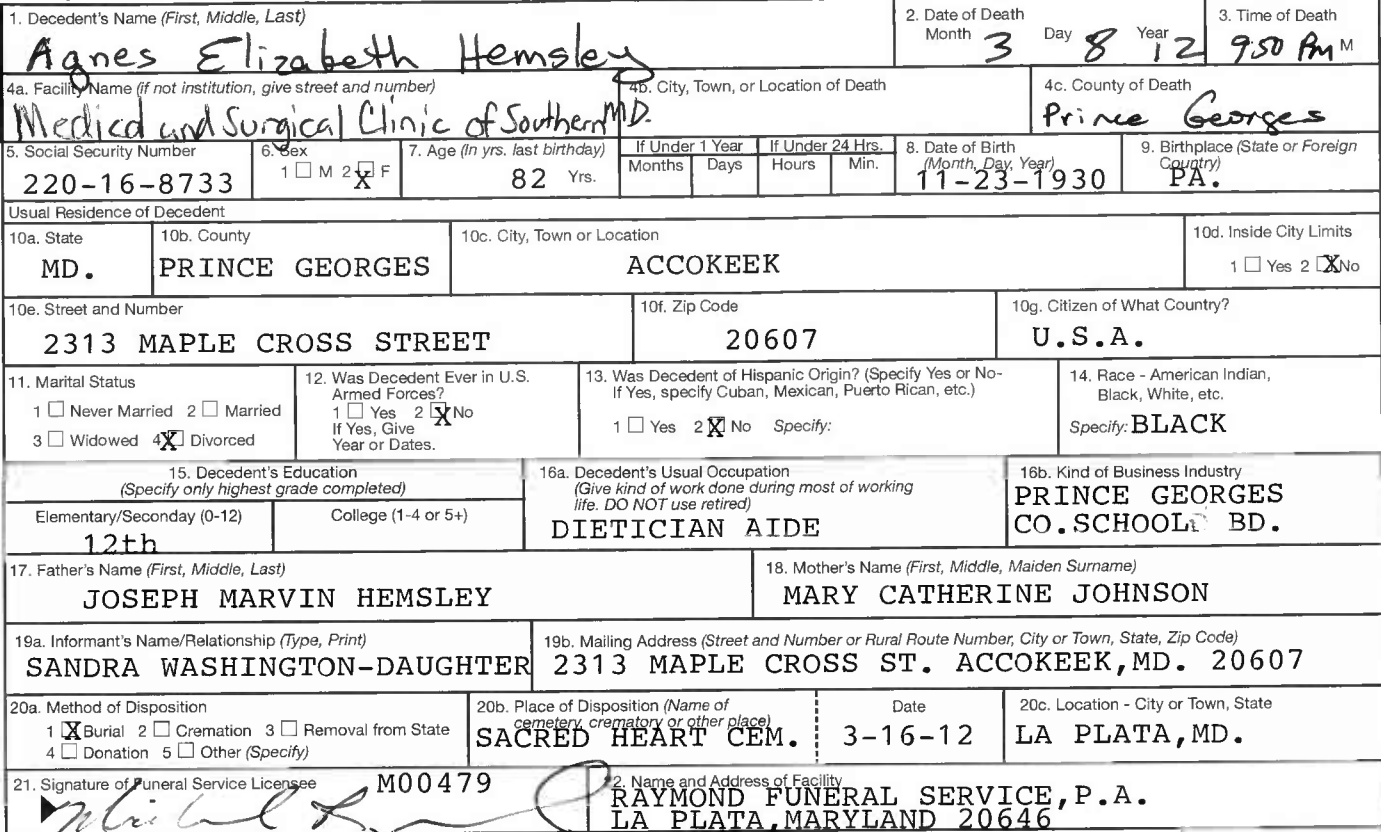 1. Decedent's Name (First, Middle, Last)
Agnes Elizabeth Hemsley
2. Date of Death
Month 3 Day 8 Year 12
3. Time of Death
9:50 Pm M
4a. Facility Name (if not institution, give street and number)
Medical and Surgical Clinic of Southern MD.
4b. City, Town, or Location of Death
4c. County of Death
Prince Georges
5. Social Security Number
220-16-8733
6. Sex
1 ☐ M 2 ☒ F
7. Age (In yrs. last birthday)
82 Yrs.
If Under 1 Year
Months Days
If Under 24 Hrs.
Hours Min.
8. Date of Birth
(Month, Day, Year)
11-23-1930
9. Birthplace (State or Foreign
Country)
PA.
Usual Residence of Decedent
10a. State
MD.
10b. County
PRINCE GEORGES
10c. City, Town or Location
ACCOKEEK
10d. Inside City Limits
1 ☐ Yes 2 ☒ No
10e. Street and Number
2313 MAPLE CROSS STREET
10f. Zip Code
20607
10g. Citizen of What Country?
U.S.A.
11. Marital Status
1 ☐ Never Married 2 ☐ Married
3 ☐ Widowed 4 ☒ Divorced
12. Was Decedent Ever in U.S.
Armed Forces?
1 ☐ Yes 2 ☒ No
If Yes, Give
Year or Dates.
13. Was Decedent of Hispanic Origin? (Specify Yes or No-
If Yes, specify Cuban, Mexican, Puerto Rican, etc.)
1 ☐ Yes 2 ☒ No Specify:
14. Race - American Indian,
Black, White, etc.
Specify: BLACK
15. Decedent's Education
(Specify only highest grade completed)
Elementary/Seconday (0-12)
12th
College (1-4 or 5+)
16a. Decedent's Usual Occupation
(Give kind of work done during most of working
life. DO NOT use retired)
DIETICIAN AIDE
16b. Kind of Business Industry
PRINCE GEORGES
CO.SCHOOL BD.
17. Father's Name (First, Middle, Last)
JOSEPH MARVIN HEMSLEY
18. Mother's Name (First, Middle, Maiden Surname)
MARY CATHERINE JOHNSON
19a. Informant's Name/Relationship (Type, Print)
SANDRA WASHINGTON-DAUGHTER
19b. Mailing Address (Street and Number or Rural Route Number, City or Town, State, Zip Code)
2313 MAPLE CROSS ST. ACCOKEEK,MD. 20607
20a. Method of Disposition
1 ☒ Burial 2 ☐ Cremation 3 ☐ Removal from State
4 ☐ Donation 5 ☐ Other (Specify)
20b. Place of Disposition (Name of
cemetery, crematory or other place)
SACRED HEART CEM.
Date
3-16-12
20c. Location - City or Town, State
LA PLATA,MD.
21. Signature of Funeral Service Licensee M00479
22. Name and Address of Facility
RAYMOND FUNERAL SERVICE,P.A.
LA PLATA,MARYLAND 20646